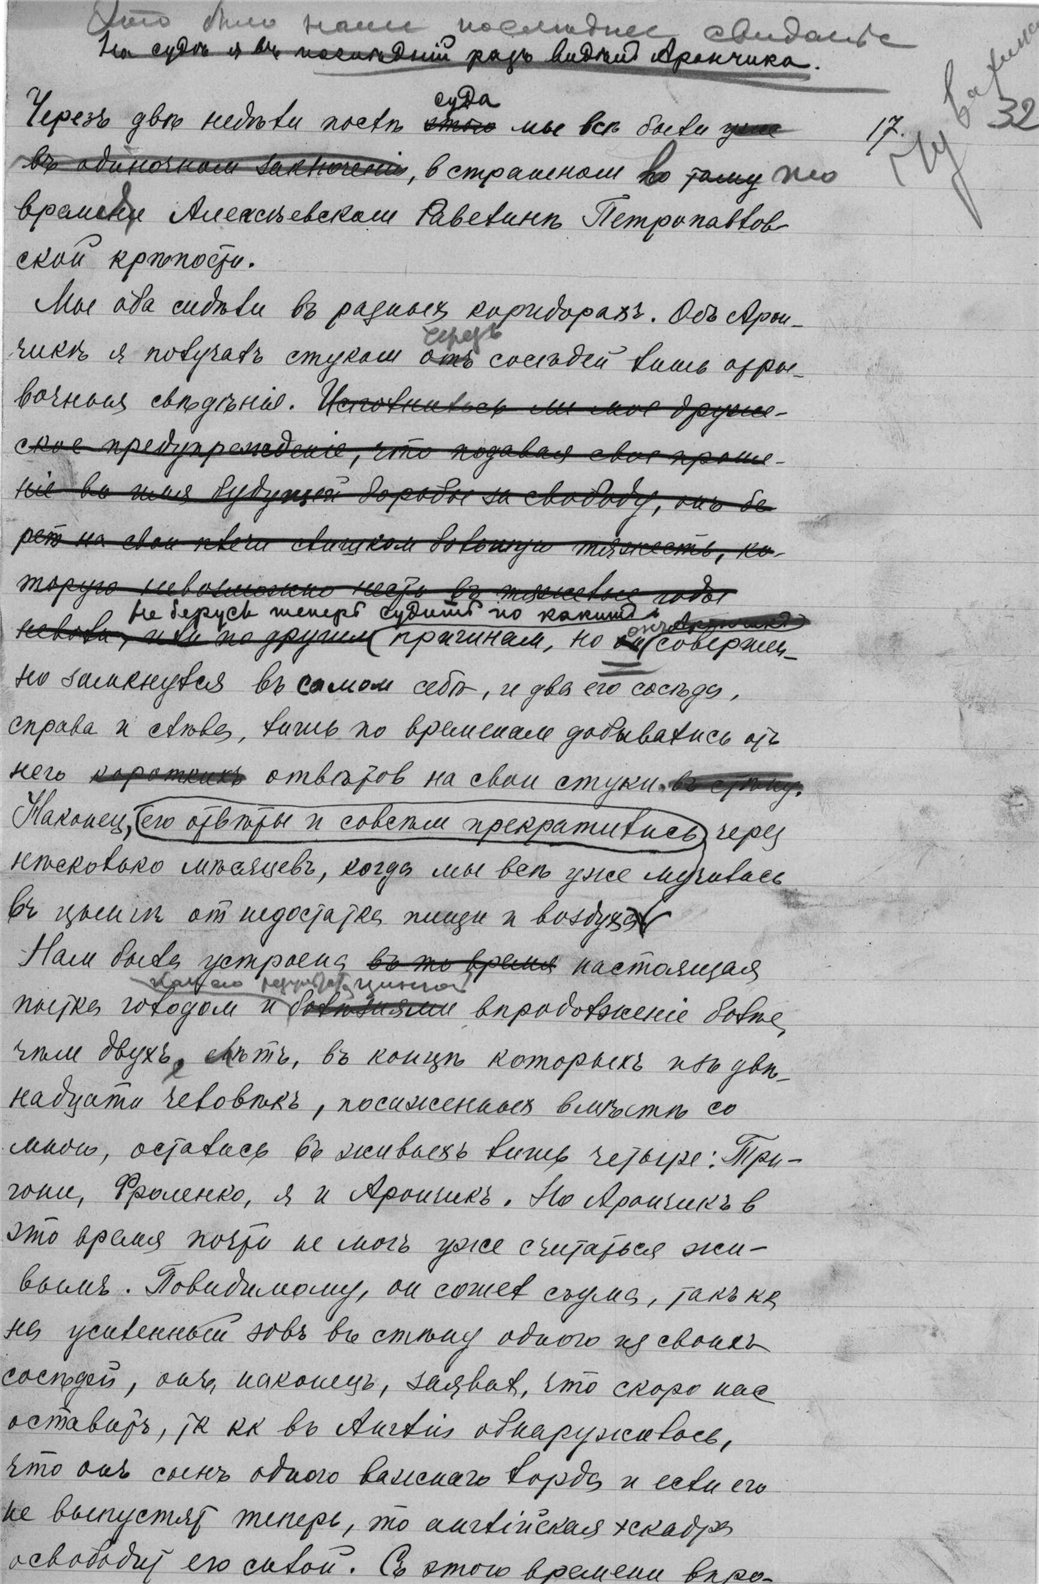 Это было наше последнее свиданье
На судѣ я въ послѣдній разъ видѣлъ Арончика.
32
17.
суда
Черезъ двѣ недѣли послѣ этого мы всѣ были уже
въ одиночном заключеніи, в страшном по тому же
времени Алексѣевском Равелинѣ Петропавлов-
ской крѣпости.
Мы оба сидѣли въ разныхъ коридорахъ. Объ Арон-
черезъ
чикѣ я получалъ стуком отъ сосѣдей лишь отры-
вочныя свѣдѣнія. Исполнилось ли мое друже-
ское предупрежденіе, что подавая свое проше-
ніе во имя будущей борьбы за свободу, онъ бе-
рет на свои плечи слишком большую тяжесть, ко-
торую невозможно нести въ тяжелые годы
Не берусь теперь судить по каким
неволи, или по другим причинам, но он совершен-
но замкнулся въ самом себѣ, и два его сосѣда,
справа и слѣва, лишь по временам добивались отъ
него короткихъ отвѣтов на свои стуки въ стѣну.
Наконец, его отвѣты и совсѣм прекратились через
нѣсколько мѣсяцевъ, когда мы всѣ уже мучились
въ цынгѣ от недостатка пищи и воздуха
Нам была устроена въ то время настоящая
цингой
пытка голодом и болѣзнями впродолженіе болѣе,
чѣм двухъ лѣтъ, въ концѣ которыхъ изъ двѣ-
надцати человѣкъ, посаженных вмѣстѣ со
мною, остались въ живыхъ лишь четыре: Три-
гони, Фроленко, я и Арончикъ. Но Арончикъ в
это время почти не могъ уже считаться жи-
вымъ. Повидимому, он сошел съума, такъ как
на усиленный зовъ въ стѣну одного из своихъ
сосѣдей, онъ, наконецъ, заявил, что скоро нас
оставитъ, тк кк въ Англіи обнаружилось,
что онъ сынъ одного важнаго лорда и если его
не выпустят теперь, то англійская эскадра
освободит его силой. Съ этого времени впро-